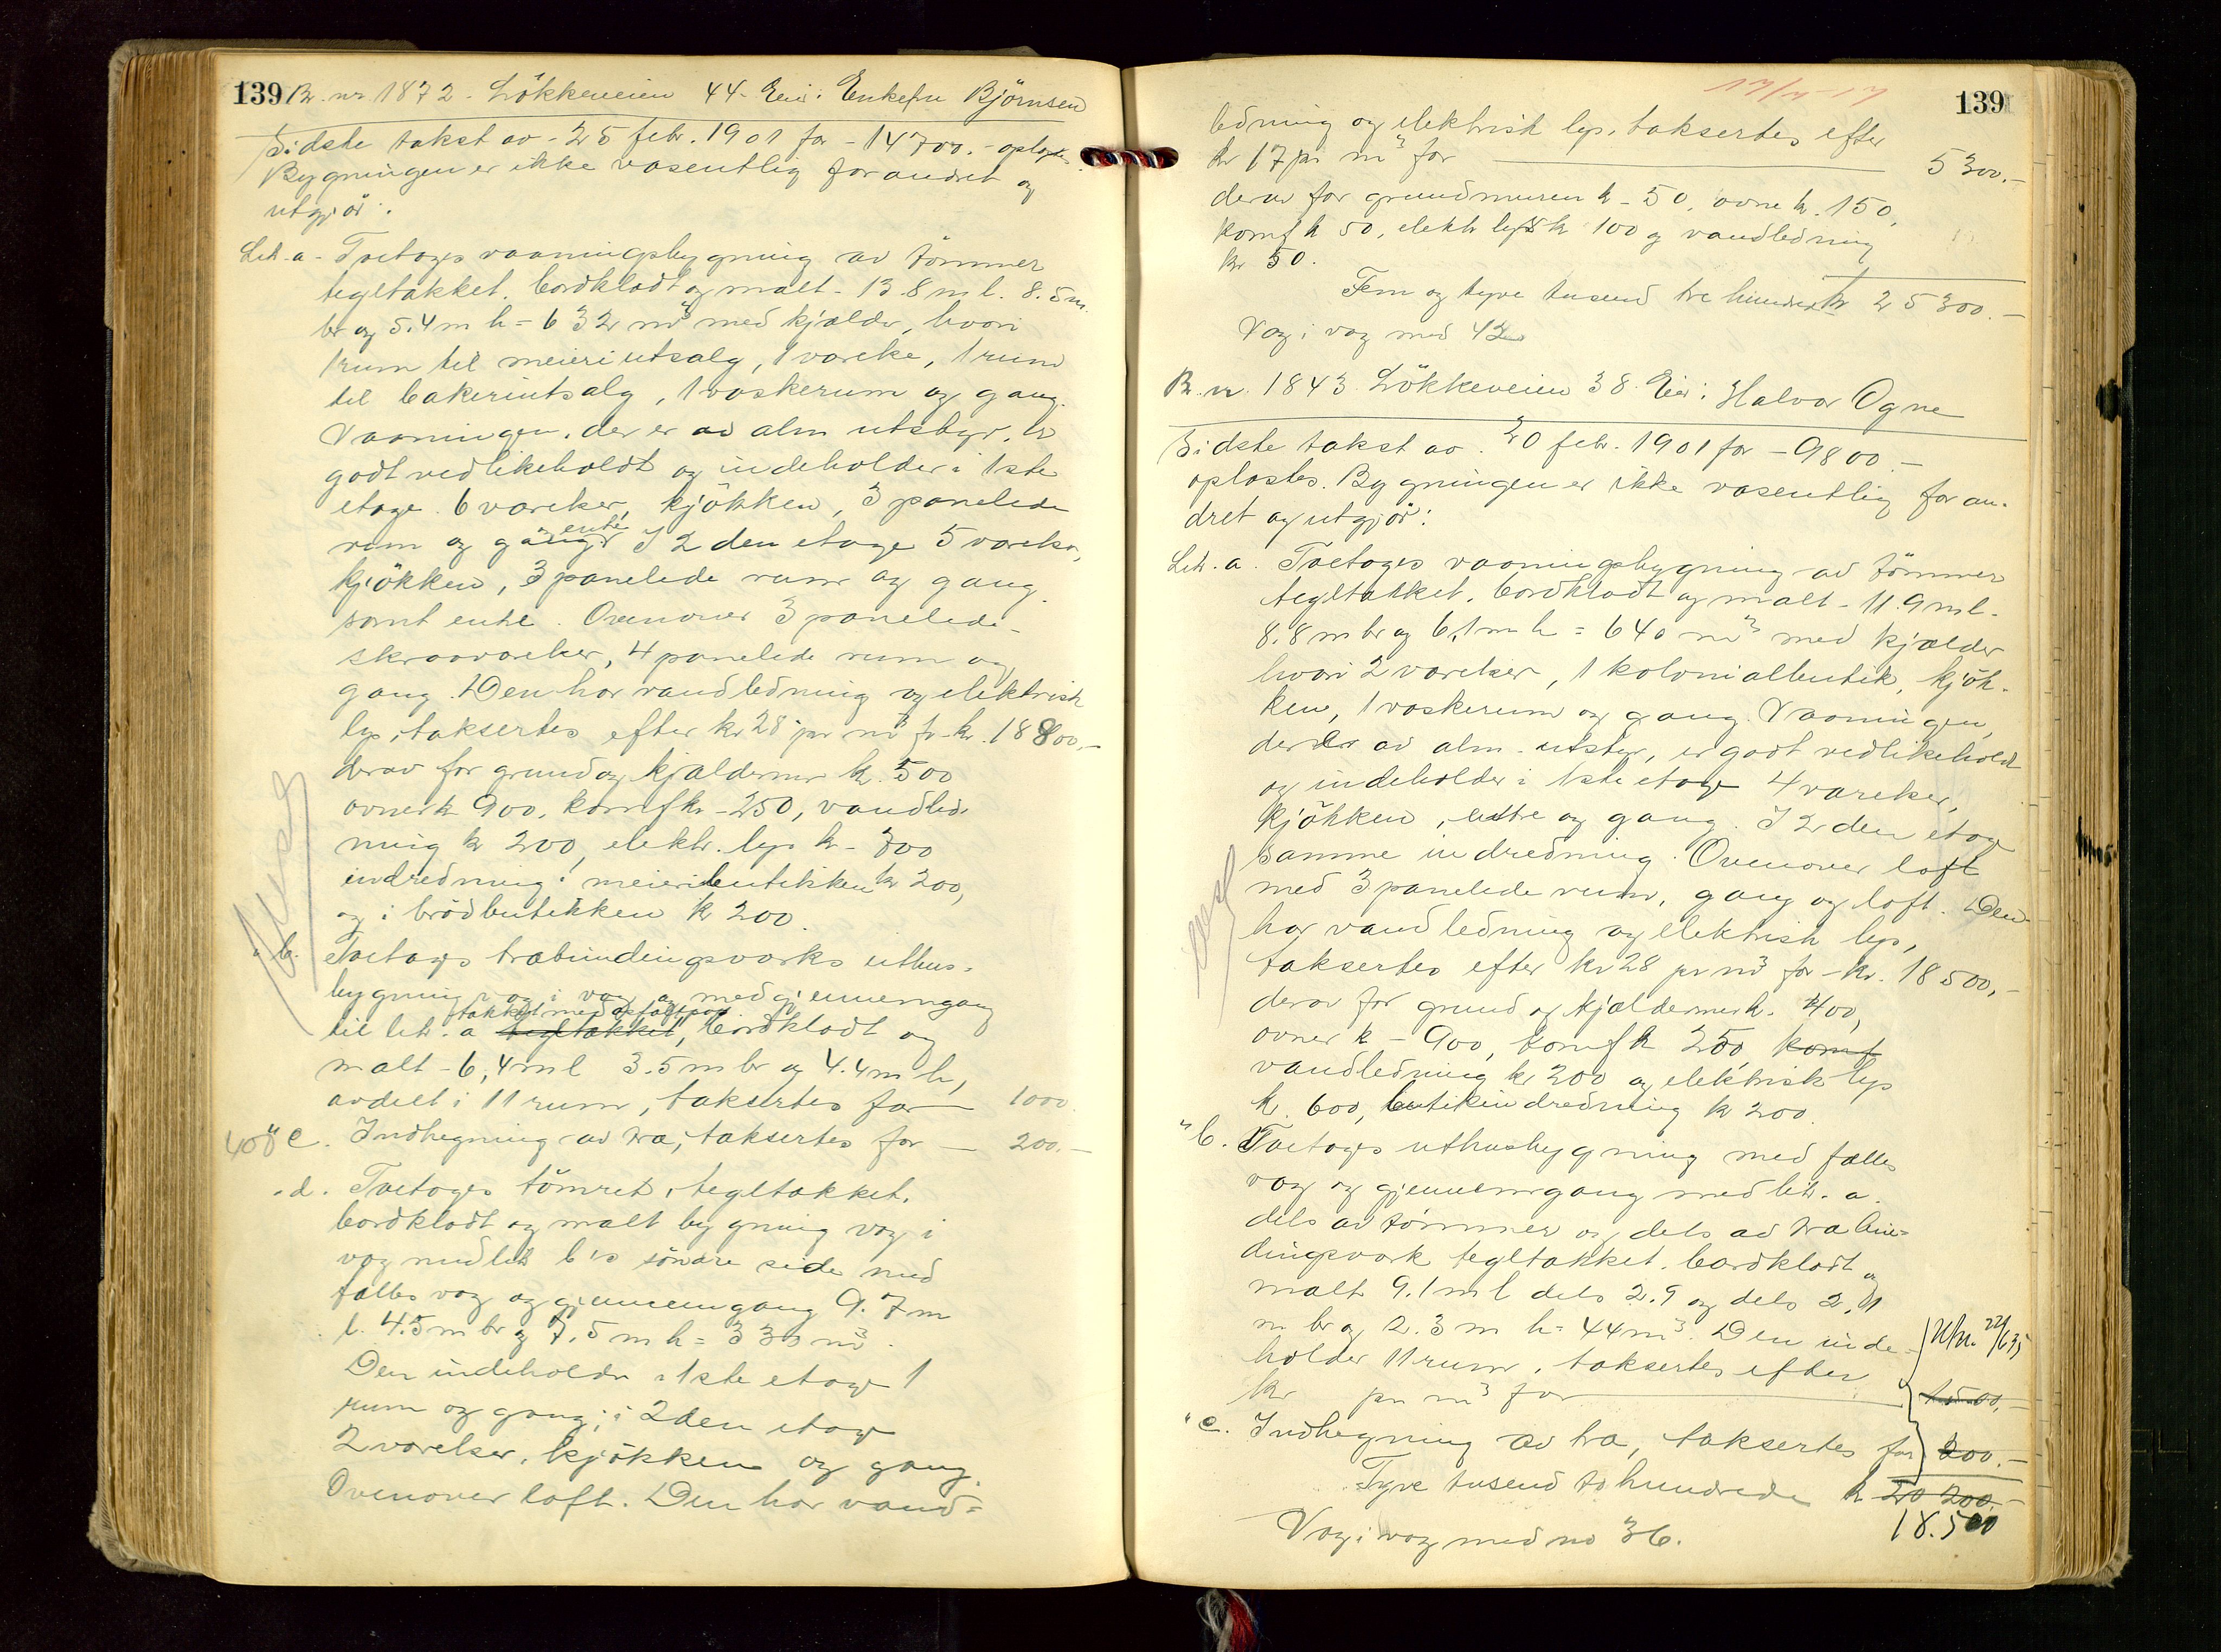 139 Br. nr. 1872. Lökkeveien 44. Eier: Enkefru Björnsen
Sidste takst av 25 febr. 1901 for - 14700.- oplæstes.
Bygningen er ikke væsentlig forandret og
utgjör:
Litr. a - Toetages vaaningsbygning av tömmer
tegltækket, bordklædt og malt - 13.8 m l. 8.5 m
br og 5.4 m h = 632 m³ med kjælder, hvori
1 rum til meieriutsalg, 1 værelse, 1 rum
til bakeriutsalg, 1 vaskerum og gang.
Vaaningen, der er av alm utstyr, er
godt vedlikeholdt og indeholder i 1ste
etage 6 værelser, kjökken, 3 panelede
rum og gang og entre. I 2den etage 5 værelser,
kjökken, 3 panelede rum og gang
samt entre. Ovenover 3 panelede
skraaværelser, 4 panelede rum og
gang. Den har vandledning og elektrisk
lys, taksertes efter kr 28 pr m³ for kr. 18800,-
derav for grund og kjældermur kr. 500
ovner kr 900, komf kr - 250, vandled-
ning kr 200, elektr. lys kr - 300
indredning i meieributikken kr 200,
og i brödbutikken kr 200.
" b. Toetages træbindingsverks uthus-
bygning væg i væg og med gjennemgang
til litr. a tegltækket, takket med asfaltpap bordklædt og
malt - 6,4 m l 3.5 m br og 4.4 m h,
avdelt i 11 rum, taksertes for — 1000.
400 " c. Indhegning av træ, taksertes for — 200.-
" d. Toetages tömret, tegltækket,
bordklædt og malt bygning væg i
væg med litr b's söndre side med
fælles væg og gjennemgang 9.7 m
l. 4.5 m br og 7.5 m h = 330 m³.
Den indeholder i 1ste etage 1
rum og gang; i 2den etage
2 værelser, kjökken og gang.
Ovenover loft. Den har vand=
139
ledning og elektrisk lys, taksertes efter
kr 17 pr m³ for — 5300.-
derav for grundmuren kr - 50, ovne kr. 150,
komf kr 50, elektr lys kr 100 og vandledning
kr 50.
Fem og tyve tusend tre hundrede kr 25300.-
Væg i væg med 42
Br. nr. 1843. Lökkeveien 38. Eier: Halvor Ogne
Sidste takst av 20 febr. 1901 for - 9800.-
oplæstes. Bygningen er ikke væsentlig foran-
dret og utgjör:
Litr. a. Toetages vaaningsbygning av tömmer
tegltækket, bordklædt og malt - 11.9 m l.
8.8 m br og 6,1 m h = 640 m³ med kjælder
hvori 2 værelser, 1 kolonialbutik, kjök-
ken, 1 vaskerum og gang. Vaaningen,
der er av alm. utstyr, er godt vedlikeholdt
og indeholder i 1ste etage 4 værelser,
kjökken, entre og gang. I 2den etage
samme indredning. Ovenover loft
med 3 panelede rum, gang og loft. Den
har vandledning og elektrisk lys,
taksertes efter kr 28 pr m³ for - kr. 18500,-
derav for grund og kjældermur kr. 400,
ovner kr - 900, komf kr 250, komf
vandledning kr 200 og elektrisk lys
kr. 600, butikindredning kr 200.
" b. Toetages uthusbygning med fælles
væg og gjennemgang med litr. a.
dels av tömmer og dels av træbin=
dingsverk tegltækket, bordklædt og
malt 9.1 m l dels 2.9 og dels 2,1
m br og 2.3 m h = 44 m³. Den inde-
holder 11 rum, taksertes efter
kr pr m³ for — 1500,-
" c. Indhegning av træ, taksertes for 200.-
Tyve tusend to hundrede kr 20 200.-
18.500
Væg i væg med no 36.